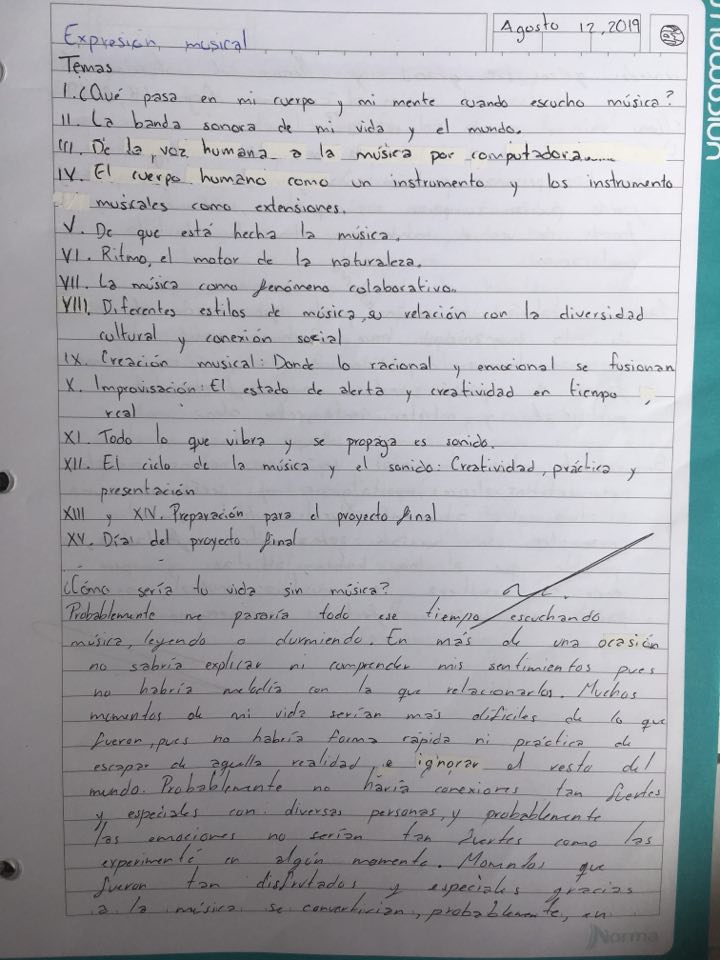 Agosto 12, 2019
Expresión musical
Temas
I. ¿Qué pasa en mi cuerpo y mi mente cuando escucho música?
II. La banda sonora de mi vida y el mundo.
III. De la voz humana a la música por computadora......
IV. El cuerpo humano como un instrumento y los instrumento
musicales como extensiones.
V. De que está hecha la música.
VI. Ritmo, el motor de la naturaleza.
VII. La música como fenómeno colaborativo.
VIII. Diferentes estilos de música, su relación con la diversidad
cultural y conexión social
IX. Creación musical: Donde lo racional y emocional se fusionan
X. Improvisación: El estado de alerta y creatividad en tiempo
real
XI. Todo lo que vibra y se propaga es sonido.
XII. El ciclo de la música y el sonido: Creatividad, práctica y
presentación
XIII y XIV. Preparación para el proyecto final
XV. Día del proyecto final
¿Cómo sería tu vida sin música?
Probablemente me pasaría todo ese tiempo escuchando
música, leyendo o durmiendo. En más de una ocasión
no sabría explicar ni comprender mis sentimientos pues
no habría melodía con la que relacionarlos. Muchos
momentos de mi vida serían más difíciles de lo que
fueron, pues no habría forma rápida ni práctica de
escapar de aquella realidad e ignorar el resto del
mundo. Probablemente no haría conexiones tan fuertes
y especiales con diversas personas, y probablemente
las emociones no serían tan fuertes como las
experimenté en algún momento. Momentos que
fueron tan disfrutados y especiales gracias
a la música se convertirían, probablemente, en
Norma